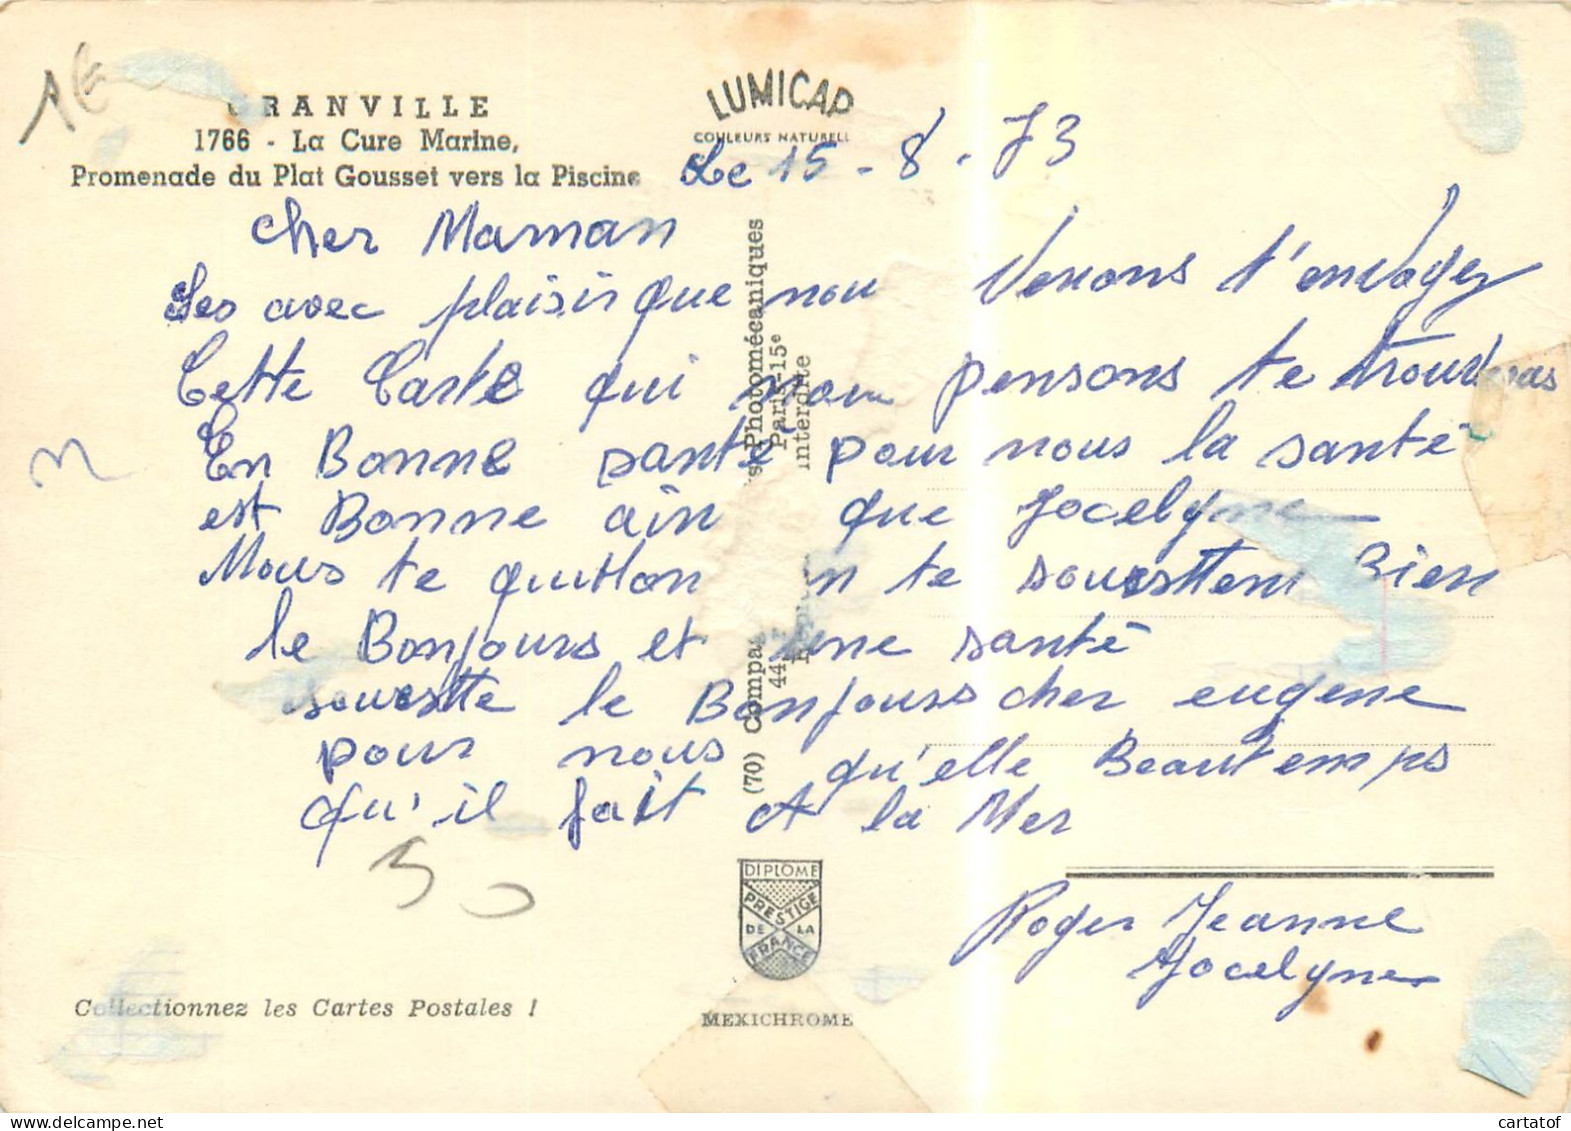 1€
GRANVILLE
1766 - La Cure Marine,
Promenade du Plat Gousset vers la Piscine
LUMICAP
COULEURS NATUREL
Le 15 - 8 . 73
cher Maman
Ses avec plaisir que nou venons t'envoyez
Cette Carte qui nou pensons te trouv
En Bonne santé pour nous la santé
est Bonne ain que Jocelyne
Nous te quitton n te souestten Bien
le Bonjours et une santé
souestte le Bonjours cher eugene
pour nous qu'elle Beautemps
qu'il fait A la Mer
Roger Jeanne
Jocelyne
Photomécaniques
Paris-15e
interdite
(70) Compa
44
DIPLOME
PRESTIGE
DE LA
FRANCE
MEXICHROME
Collectionnez les Cartes Postales !
cartatof